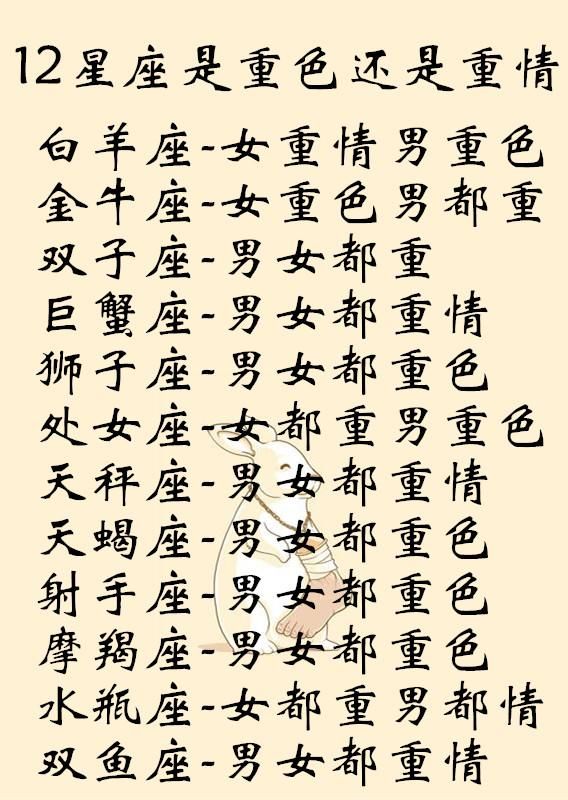 12星座是重色还是重情
白羊座-女重情男重色
金牛座-女重色男都重
双子座-男女都重
巨蟹座-男女都重情
狮子座-男女都重色
处女座-女都重男重色
天秤座-男女都重情
天蝎座-男女都重色
射手座-男女都重色
摩羯座-男女都重色
水瓶座-女都重男都情
双鱼座-男女都重情